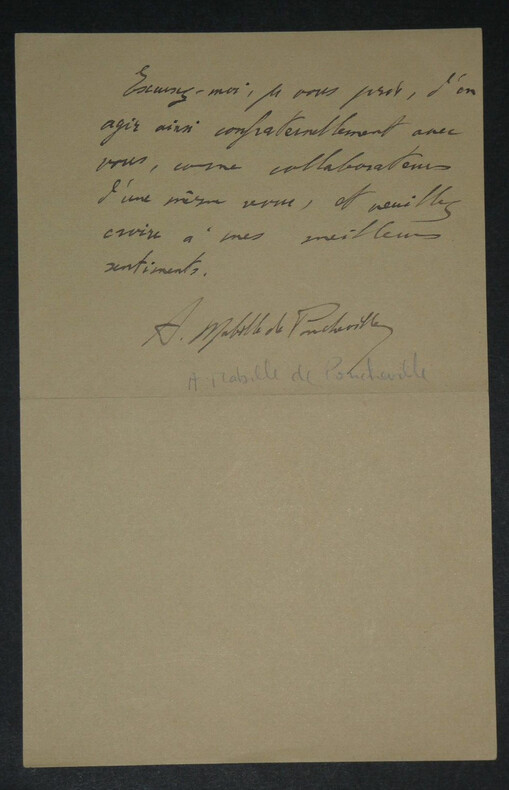 Excusez-moi, je vous prie, d'en
agir ainsi confraternellement avec
vous, comme collaborateurs
d'une même revue, et veuillez
croire à mes meilleurs
sentiments.
A. Mabille de Poncheville
A Mabille de Poncheville